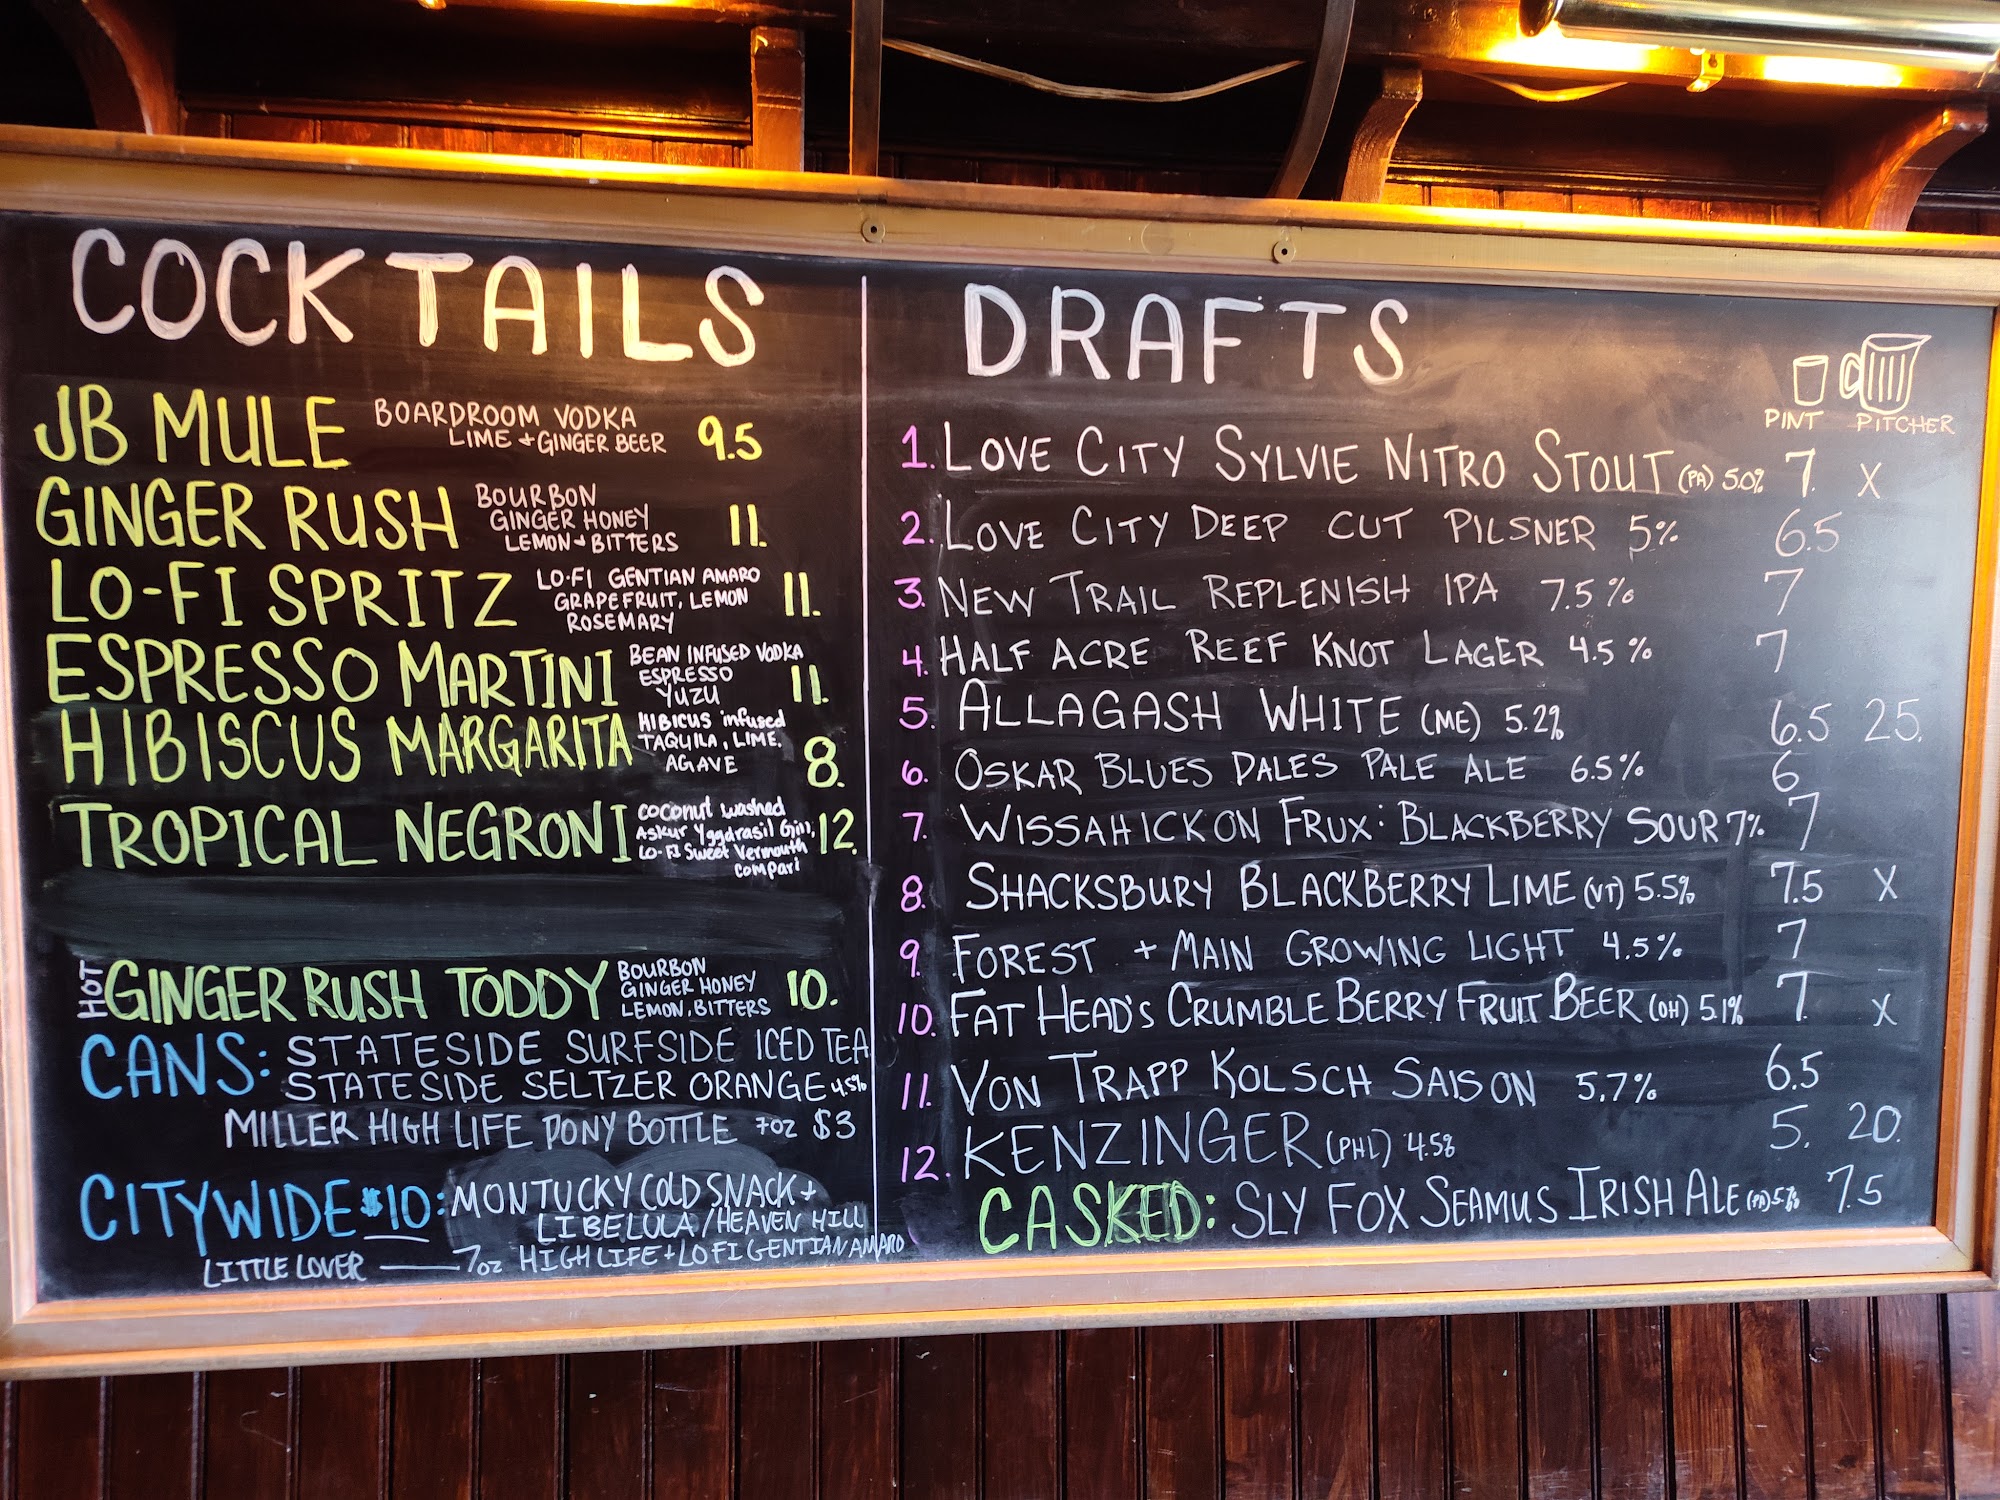 COCKTAILS
JB MULE BOARDROOM VODKA 9.5
LIME + GINGER BEER
GINGER RUSH BOURBON 11.
GINGER HONEY
LEMON + BITTERS
LO-FI SPRITZ LO-FI GENTIAN AMARO 11.
GRAPEFRUIT, LEMON
ROSEMARY
ESPRESSO MARTINI BEAN INFUSED VODKA 11.
ESPRESSO
YUZU
HIBISCUS MARGARITA HIBICUS infused 8.
TAQUILA, LIME.
AGAVE
TROPICAL NEGRONI coconut washed 12.
Askur Yggdrasil Gin,
LO-FI Sweet Vermouth
Compari
HOT GINGER RUSH TODDY BOURBON 10.
GINGER HONEY
LEMON, BITTERS
CANS: STATESIDE SURFSIDE ICED TEA
STATESIDE SELTZER ORANGE 4.5%
MILLER HIGH LIFE PONY BOTTLE 7OZ $3
CITYWIDE $10: MONTUCKY COLD SNACK +
LIBELULA/HEAVEN HILL
LITTLE LOVER — 7OZ HIGH LIFE + LOFI GENTIAN AMARO
DRAFTS
PINT PITCHER
1. LOVE CITY SYLVIE NITRO STOUT (PA) 5.0% 7. X
2. LOVE CITY DEEP CUT PILSNER 5% 6.5
3. NEW TRAIL REPLENISH IPA 7.5% 7
4. HALF ACRE REEF KNOT LAGER 4.5% 7
5. ALLAGASH WHITE (ME) 5.2% 6.5 25.
6. OSKAR BLUES DALES PALE ALE 6.5% 6
7. WISSAHICKON FRUX: BLACKBERRY SOUR 7% 7
8. SHACKSBURY BLACKBERRY LIME (VT) 5.5% 7.5 X
9. FOREST + MAIN GROWING LIGHT 4.5% 7
10. FAT HEAD'S CRUMBLE BERRY FRUIT BEER (OH) 5.1% 7. X
11. VON TRAPP KOLSCH SAISON 5.7% 6.5
12. KENZINGER (PHL) 4.5% 5. 20.
CASKED: SLY FOX SEAMUS IRISH ALE (PA) 7.5